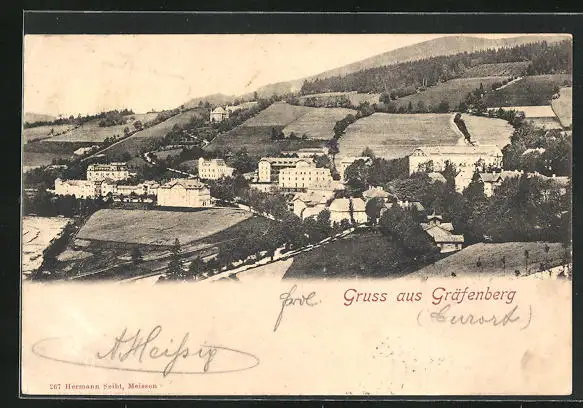 Gruss aus Gräfenberg
(Kurort)
A Meissig
267 Hermann Seibt, Meissen